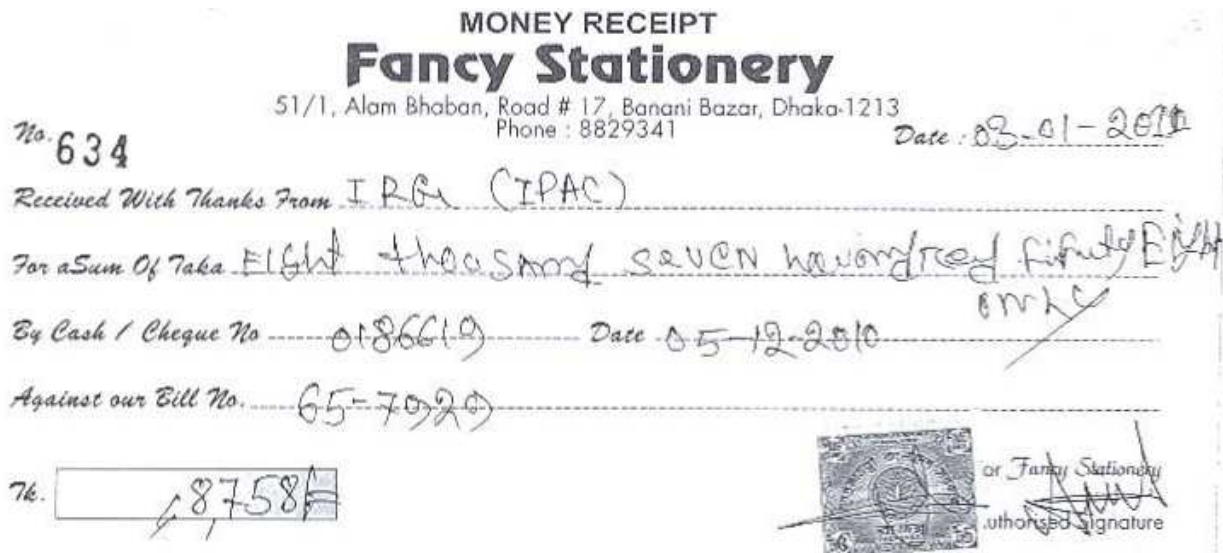 MONEY RECEIPT
Fancy Stationery
51/1, Alam Bhaban, Road # 17, Banani Bazar, Dhaka-1213
Phone : 8829341
No. 634
Date : 03-01-2011
Received With Thanks From IRG (IPAC)
For aSum Of Taka EIGht thousand SeVEN houndred fifuty Eight
only
By Cash / Cheque No 0186619 Date 05-12-2010
Against our Bill No. 65-7929
Tk. 8758/=
or Fancy Stationery
uthorised Signature